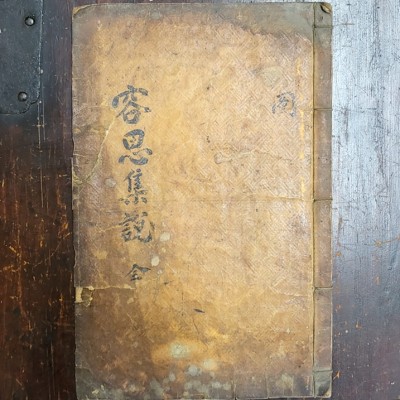 容思集說 全